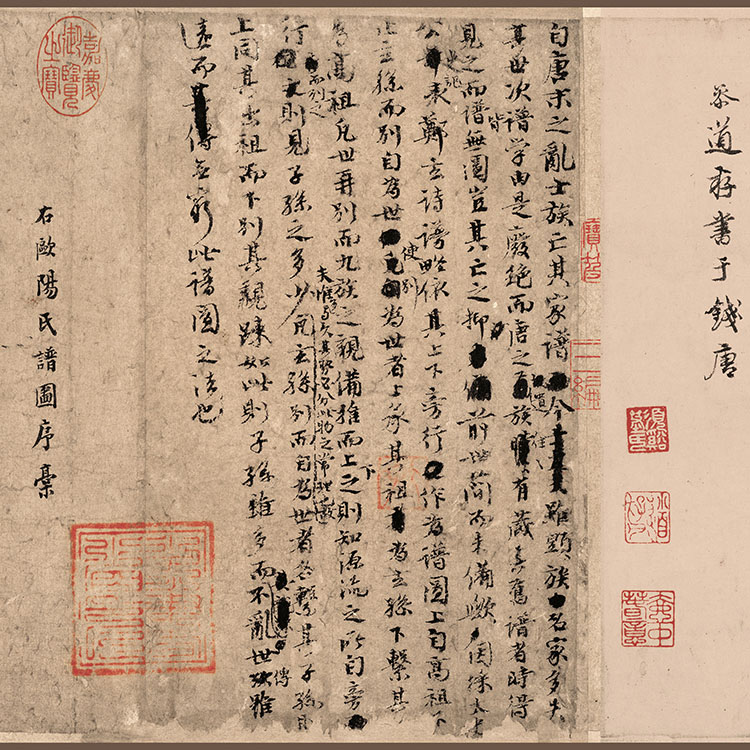 道存書于錢唐
自唐末之亂士族亡其家譜今雖顯族名家多失
其世次譜學由是廢絕而唐之遺族往往有藏其舊譜者時得
見之而譜皆無圖豈其亡之抑前世簡而未備歟因採太史
公史記表鄭玄詩譜略依其上下旁行作為譜圖上自高祖下
止玄孫而別自為世使別為世者上承其祖為玄孫下繫其
為高祖凡世再別而九族之親備推而上下之則知源流之所自旁
行而列之則見子孫之多少夫惟多與久其勢必分此物之常理也凡玄孫別而自為世者各繫其子孫則
上同其出祖而下別其親踈如此則子孫雖多而不亂世傳雖
遠而無窮此譜圖之法也
右歐陽氏譜圖序稾
嘉慶御覽之寶
寶笈三編